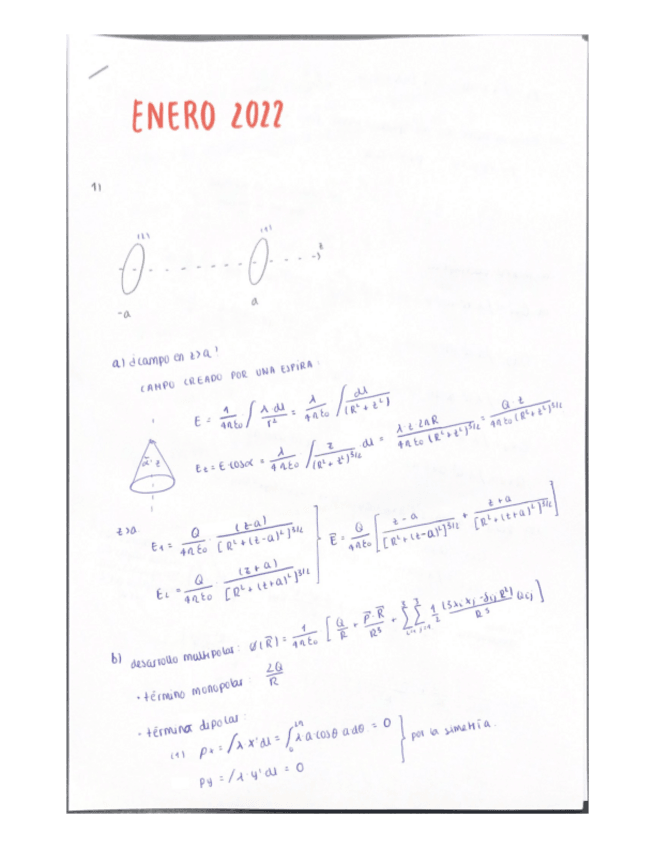 ENERO 2022
1)
(2) (1) z
-a a
a) ¿campo en z>a?
CAMPO CREADO POR UNA ESPIRA:
E = 1/4πε₀ ∫ λ dl/r² = λ/4πε₀ ∫ dl/(R²+z²)
α z
E_z = E cosα = λ/4πε₀ ∫ z/(R²+z²)^3/2 dl = λ z 2πR/4πε₀ (R²+z²)^3/2 = Q·z/4πε₀ (R²+z²)^3/2
z>a
E₁ = Q/4πε₀ · (z-a)/[R²+(z-a)²]^3/2
E₂ = Q/4πε₀ · (z+a)/[R²+(z+a)²]^3/2
E̅ = Q/4πε₀ [z-a/[R²+(z-a)²]^3/2 + z+a/[R²+(z+a)²]^3/2]
b) desarrollo multipolar: Ø(R̅) = 1/4πε₀ [Q/R + P̅·R̅/R³ + Σ Σ 1/2 (3xᵢxⱼ-δᵢⱼR²)/R⁵ Qᵢⱼ]
· término monopolar: 2Q/R
· término dipolar:
(1) Px = ∫λ x' dl = ∫₀^2π λ a cosθ a dθ = 0
Py = ∫λ·y' dl = 0
por la simetría.